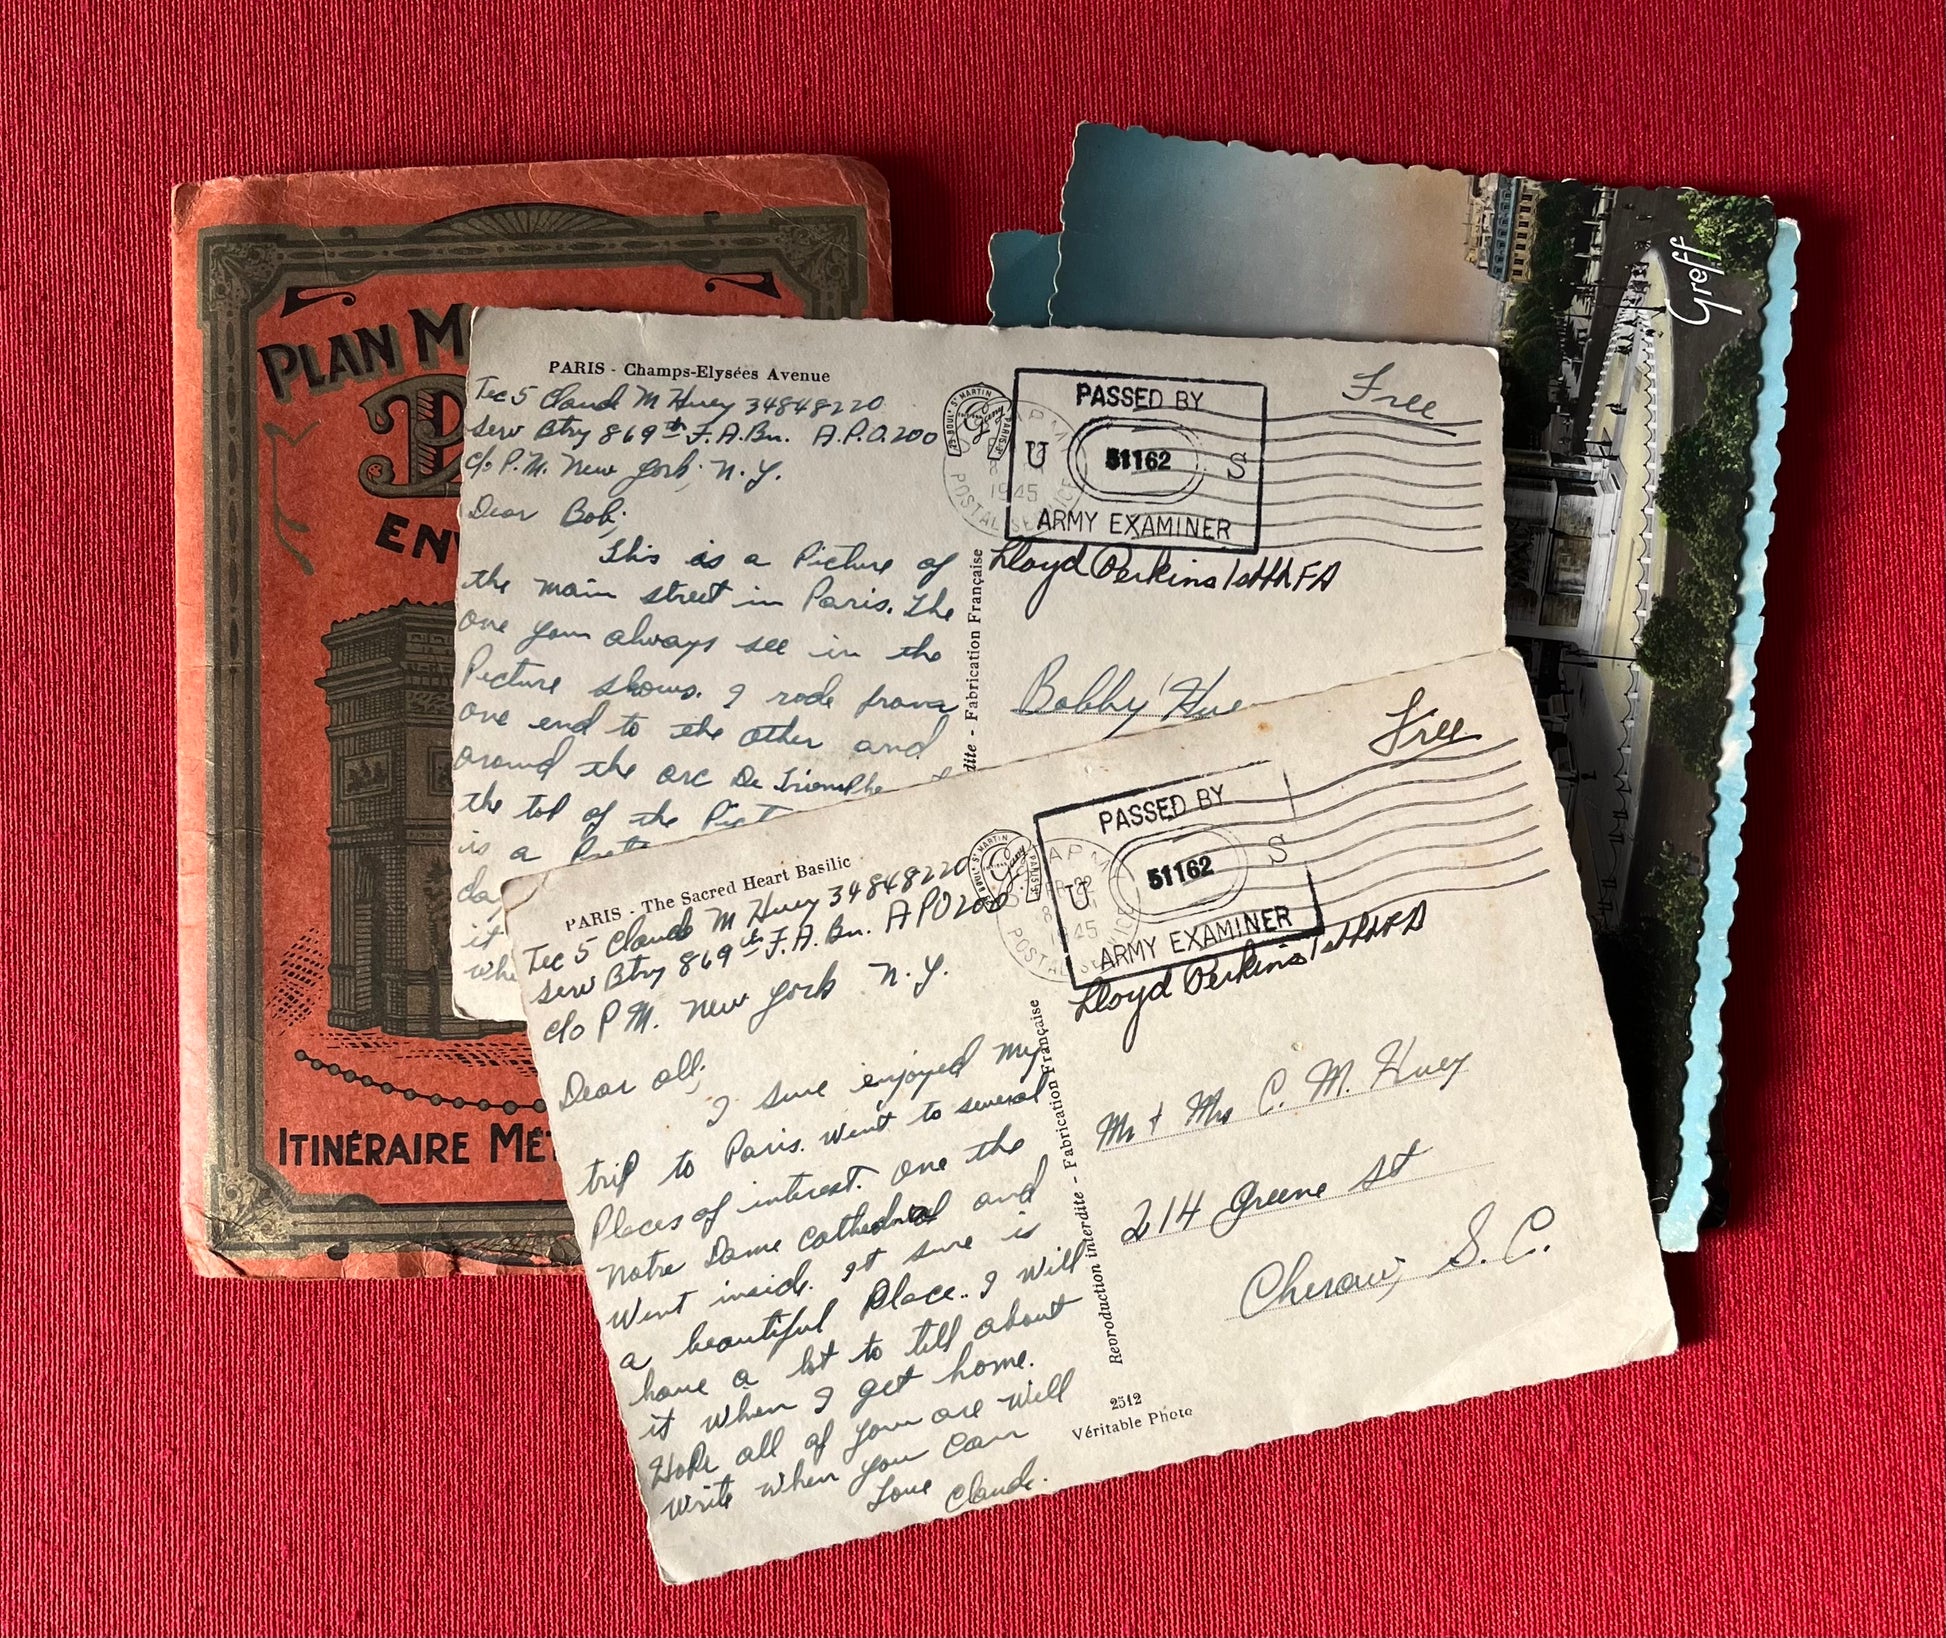 PLAN M
P
EN
ITINÉRAIRE MÉT
Greff
PARIS - Champs-Elysées Avenue
Tec 5 Claude M Huey 34848220
Serv Btry 869th F.A.Bn. A.P.O. 200
c/o P.M. New York, N.Y.
Dear Bob;
This is a Picture of
the main street in Paris. The
one your always see in the
Picture shows. I rode from
one end to the other and
around the arc De Triomphe
the top of the Pict
is a
day
it
whe
29 BOULD ST MARTIN PARIS-3e
1945
POSTAL SERVICE
PASSED BY
U 51162 S
ARMY EXAMINER
Free
Lloyd Perkins 1st Lt FA
Bobby Hue
dite - Fabrication Française
PARIS - The Sacred Heart Basilic
Tec 5 Claude M Huey 34848220
Serv Btry 869th F.A. Bn. APO 200
c/o P M. New York N.Y.
Dear all;
I sure enjoyed my
trip to Paris. Went to several
Places of interest. One the
Notre Dame Cathedral and
Went inside. It sure is
a beautiful Place. I will
have a lot to tell about
it when I get home.
Hope all of your are well
Write when your can
Love Claude.
BOULD ST MARTIN PARIS-3e
22
1945
POSTAL SERVICE
PASSED BY
U 51162 S
ARMY EXAMINER
Free
Lloyd Perkins 1st Lt FA
Mr & Mrs C. M. Huey
214 Greene St
Cheraw, S. C.
Reproduction interdite - Fabrication Française
2512
Véritable Photo